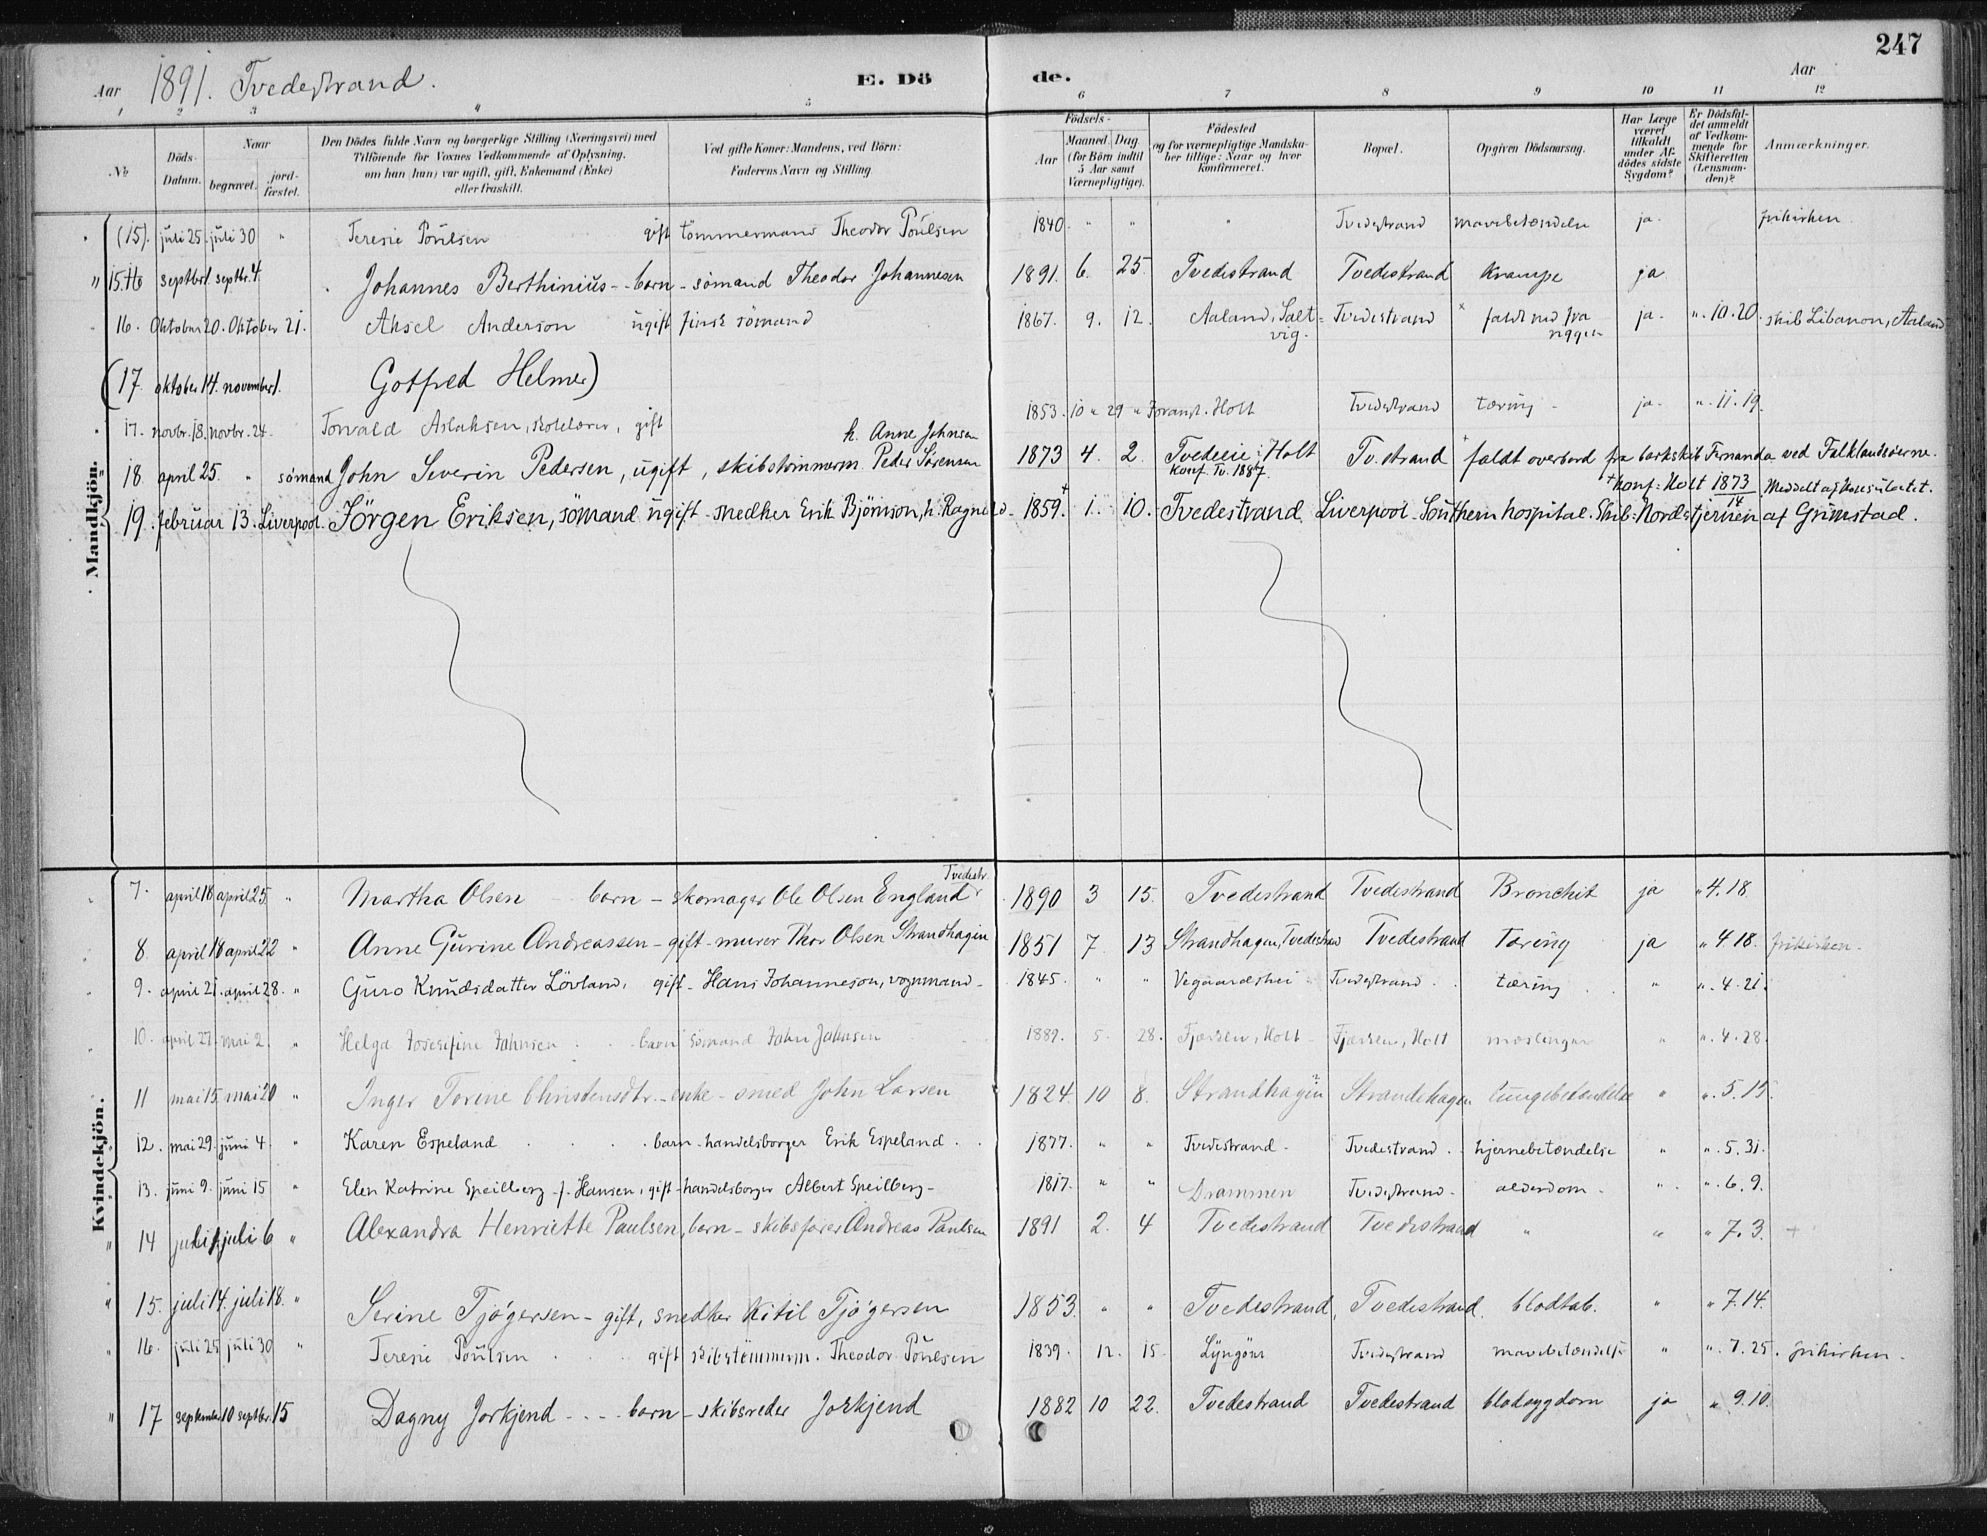 247
Aar 1891. Tvedestrand. E. Dö de. Aar
1 2 3 4 5 6 7 8 9 10 11 12
No Döds-Datum. Naar begravet. jord-fæstet. Den Dödes fulde Navn og borgerlige Stilling (Næringsvei) med Tilföiende for Voxnes Vedkommende af Oplysning, om han (hun) var ugift, gift, Enkemand (Enke) eller fraskilt. Ved gifte Koner: Mandens, ved Börn: Faderens Navn og Stilling. Födsels- Aar Maaned. Dag (for Börn indtil 5 Aar samt Værnepligtige). Födested og for værnepligtige Mandskaber tillige: Naar og hvor konfirmeret. Bopæl. Opgiven Dödsaarsag. Har Læge været tilkaldt under Afdödes sidste Sygdom? Er Dödsfaldet anmeldt af Vedkommende for Skifteretten (Lensmanden)? Anmærkninger.
Mandkjön.
(15). juli 25. juli 30 " Teresie Poulsen gift tömmermand Theodor Poulsen 1840. " " " Tvedestrand mavebetændelse ja. frikirken
" 15. septbr 1. septbr. 4. Johannes Berthinius - barn - sömand Theodor Johannesen 1891. 6. 25. Tvedestrand Tvedestrand Krampe ja
16. Oktober 20. Oktober 21. Aksel Anderson ugift finsk sömand 1867. 9. 12. Aaland, Saltvig. Tvedestrand × faldt ned fra riggen ja. ". 10. 20. skib Libanon, Aaland
(17. oktober 14. november 1. Gotfred Helmer)
17. novbr. 18. novbr. 24. Torvald Aslaksen, skolelærer, gift 1853. 10 " 29 " Holt Tvedestrand tæring - ja. ". 11. 19.
18. april 25 " sömand John Severin Pedersen, ugift, skibstömmerm. Peder Sörensen h. Anne Johnsen 1873 4. 2. Tvedeeie: Holt konf. Tv. 1887. Tv.strand × faldt overbord fra barkskib Fernanda ved Falklandsöerne.
19. februar 13. Liverpool. Jörgen Eriksen, sömand ugift - snedker Erik Björnson, h: Ragnild - 1859. + 1. 10. Tvedestrand Liverpool - Southern hospital. Skib: Nordstjernen af Grimstad. + konf: Holt 1873 14 Meddelt af Konsulatet.
Kvindekjön.
7. april 18 april 25 " Martha Olsen barn - skomager Ole Olsen England Tvedestr. 1890 3 15. Tvedestrand Tvedestrand Bronchit ja " 4. 18.
8. april 18 april 22 " Anne Gurine Andreassen - gift - murer Thor Olsen Strandhagen 1851 7 13 Strandhagen, Tvedestrand Tvedestrand Tæring ja " 4. 18. frikirken.
9. april 21. april 28. " Guro Knudsdatter Lövland, gift - Hans Johanneson, vognmand - 1845. " " Vegaardshei Tvedestrand. tæring " ". 4. 21.
10. april 27. mai 2. " Helga Josefine Johnsen barn sömand John Johnsen 1889. 5. 28. Fjærsen, Holt - Fjærsen, Holt mæslinger " ". 4. 28.
11 mai 15. mai 20 " Inger Torine Christensdtr. - enke - smed John Larsen 1824. 10 8. Strandhagen Strandehagen lungebetændelse " ". 5. 15.
12. mai 29. juni 4. " Karen Espeland barn - handelsborger Erik Espeland. 1877. " " Tvedestrand. Tvedestrand. hjernebetændelse " ". 5. 31.
13. juni 9. juni 15 " Elen Katrine Speilberg - f. Hansen, gift - handelsborger Albert Speilberg - 1817. " " Drammen Tvedestrand. alderdom. " ". 6. 9.
" 14 juli 1. juli 6 " Alexandra Henriette Paulsen, barn - skibsförer Andreas Paulsen 1891 2. 4 Tvedestrand Tvedestrand " " " 7. 3. +
" 15. juli 14. juli 18. " Serine Tjögersen - gift, snedker Kitil Tjögersen 1853. " " Tvedestrand, Tvedestrand. blodtab. " " 7. 14.
" 16. juli 25 juli 30 " Teresie Poulsen gift skibstömmerm. Theodor Poulsen 1839. 12. 15. Lyngöer Tvedestrand mavebetændelse " ". 7. 25. frikirken.
" 17 september 10 septbr. 15 Dagny Jorkjend - - - barn - skibsreder Jorkjend 1882 10 22. Tvedestrand Tvedestrand blodsygdom ja " 9. 10.